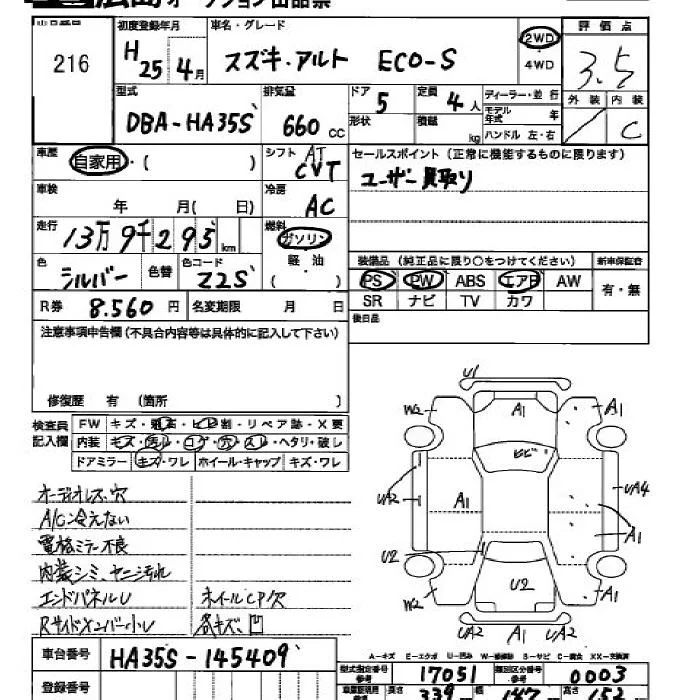 広島オークション出品票
出品番号 初度登録年月 車名・グレード 評価点
216 H 25 4月 スズキ・アルト ECO-S 2WD ・4WD 3.5
外装 内装 C
型式 DBA-HA35S 排気量 660 CC ドア 5 定員 4人 ディーラー・並行
形状 積載 kg モデル年式 年 ハンドル 左・右
車歴 自家用・( ) シフト AT CVT
セールスポイント(正常に機能するものに限ります)
ユーザー買取り
車検 年 月(日) 冷房 AC
走行 13万9千295 km 燃料 ガソリン 軽・油 ( )
色 シルバー 色替 色コード Z2S
装備品(純正品に限り○をつけてください) 新車保証書
PS PW ABS エアB AW 有・無
SR ナビ TV カワ
R券 8.560 円 名変期限 月 日
後日品
注意事項申告欄(不具合内容等は具体的に記入して下さい)
修復歴 有(箇所 )
検査員記入欄
FW キズ・飛石・ヒビ割・リペア跡・X要
内装 キズ・汚れ・コゲ・穴・スレ・ヘタリ・破レ
ドアミラー キズ・ワレ ホイール・キャップ キズ・ワレ
オーディオレス・穴
A/C冷えない
電格ミラー不良
内装シミ、ヤニ汚れ
エンドパネルU ホイールCP欠
Rサイドメンバー小U 各キズ、凹
U1
W2 A1 A1
ヒビ
UA2 A1 UA4
A1
U2
W2 U2 A1
UA2 A1 UA2
A-キズ E-エクボ U-凹み W-補修跡 S-サビ C-腐食 XX-交換済
車台番号 HA35S-145409
型式指定番号 17051 類別区分番号 0003
登録番号
長さ 339 幅 147 高さ